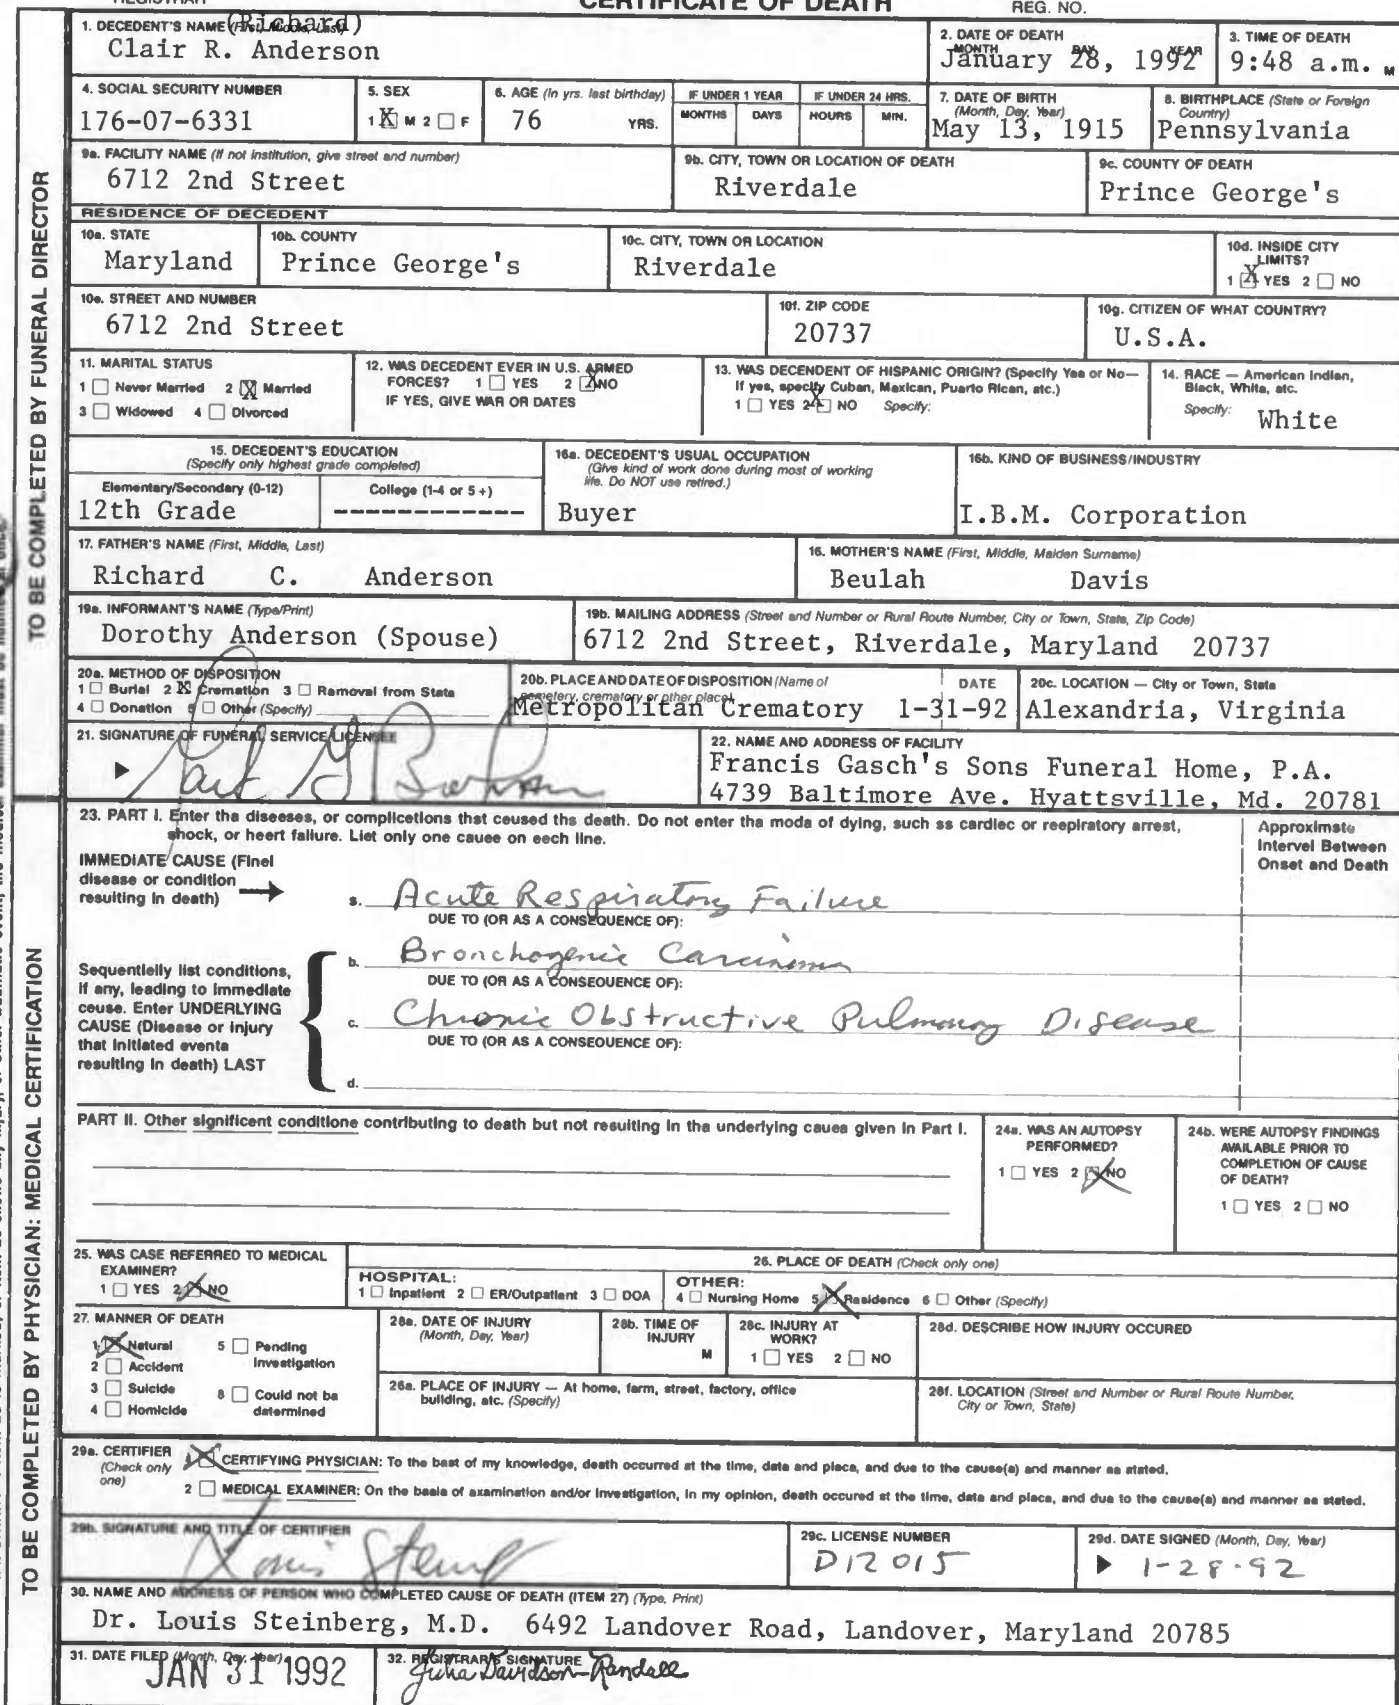 REGISTRAR
CERTIFICATE OF DEATH
REG. NO.
1. DECEDENT'S NAME (First, Middle, Last)
(Richard)
Clair R. Anderson
2. DATE OF DEATH
MONTH DAY YEAR
January 28, 1992
3. TIME OF DEATH
9:48 a.m. M
4. SOCIAL SECURITY NUMBER
176-07-6331
5. SEX
1 X M 2 □ F
6. AGE (In yrs. last birthday)
76 YRS.
IF UNDER 1 YEAR
MONTHS DAYS
IF UNDER 24 HRS.
HOURS MIN.
7. DATE OF BIRTH
(Month, Day, Year)
May 13, 1915
8. BIRTHPLACE (State or Foreign
Country)
Pennsylvania
9a. FACILITY NAME (If not institution, give street and number)
6712 2nd Street
9b. CITY, TOWN OR LOCATION OF DEATH
Riverdale
9c. COUNTY OF DEATH
Prince George's
RESIDENCE OF DECEDENT
10a. STATE
Maryland
10b. COUNTY
Prince George's
10c. CITY, TOWN OR LOCATION
Riverdale
10d. INSIDE CITY
LIMITS?
1 X YES 2 □ NO
10e. STREET AND NUMBER
6712 2nd Street
10f. ZIP CODE
20737
10g. CITIZEN OF WHAT COUNTRY?
U.S.A.
11. MARITAL STATUS
1 □ Never Married 2 X Married
3 □ Widowed 4 □ Divorced
12. WAS DECEDENT EVER IN U.S. ARMED
FORCES? 1 □ YES 2 X NO
IF YES, GIVE WAR OR DATES
13. WAS DECENDENT OF HISPANIC ORIGIN? (Specify Yes or No—
If yes, specify Cuban, Mexican, Puerto Rican, etc.)
1 □ YES 2 X NO Specify:
14. RACE — American Indian,
Black, White, etc.
Specify: White
15. DECEDENT'S EDUCATION
(Specify only highest grade completed)
Elementary/Secondary (0-12)
12th Grade
College (1-4 or 5+)
-------------
16a. DECEDENT'S USUAL OCCUPATION
(Give kind of work done during most of working
life. Do NOT use retired.)
Buyer
16b. KIND OF BUSINESS/INDUSTRY
I.B.M. Corporation
17. FATHER'S NAME (First, Middle, Last)
Richard C. Anderson
16. MOTHER'S NAME (First, Middle, Maiden Surname)
Beulah Davis
19a. INFORMANT'S NAME (Type/Print)
Dorothy Anderson (Spouse)
19b. MAILING ADDRESS (Street and Number or Rural Route Number, City or Town, State, Zip Code)
6712 2nd Street, Riverdale, Maryland 20737
20a. METHOD OF DISPOSITION
1 □ Burial 2 X Cremation 3 □ Removal from State
4 □ Donation 5 □ Other (Specify)
20b. PLACE AND DATE OF DISPOSITION (Name of
cemetery, crematory or other place)
DATE
Metropolitan Crematory 1-31-92
20c. LOCATION — City or Town, State
Alexandria, Virginia
21. SIGNATURE OF FUNERAL SERVICE LICENSEE
22. NAME AND ADDRESS OF FACILITY
Francis Gasch's Sons Funeral Home, P.A.
4739 Baltimore Ave. Hyattsville, Md. 20781
TO BE COMPLETED BY FUNERAL DIRECTOR
23. PART I. Enter the diseases, or complications that caused the death. Do not enter the mode of dying, such as cardiac or respiratory arrest,
shock, or heart failure. List only one cause on each line.
Approximate
Interval Between
Onset and Death
IMMEDIATE CAUSE (Final
disease or condition
resulting in death)
a. Acute Respiratory Failure
DUE TO (OR AS A CONSEQUENCE OF):
b. Bronchogenic Carcinoma
DUE TO (OR AS A CONSEQUENCE OF):
Sequentially list conditions,
if any, leading to immediate
cause. Enter UNDERLYING
CAUSE (Disease or injury
that initiated events
resulting in death) LAST
c. Chronic Obstructive Pulmonary Disease
DUE TO (OR AS A CONSEQUENCE OF):
d.
PART II. Other significant conditions contributing to death but not resulting in the underlying cause given in Part I.
24a. WAS AN AUTOPSY
PERFORMED?
1 □ YES 2 X NO
24b. WERE AUTOPSY FINDINGS
AVAILABLE PRIOR TO
COMPLETION OF CAUSE
OF DEATH?
1 □ YES 2 □ NO
25. WAS CASE REFERRED TO MEDICAL
EXAMINER?
1 □ YES 2 X NO
26. PLACE OF DEATH (Check only one)
HOSPITAL:
1 □ Inpatient 2 □ ER/Outpatient 3 □ DOA
OTHER:
4 □ Nursing Home 5 X Residence 6 □ Other (Specify)
27. MANNER OF DEATH
1 X Natural 5 □ Pending
Investigation
2 □ Accident
3 □ Suicide 8 □ Could not be
determined
4 □ Homicide
28a. DATE OF INJURY
(Month, Day, Year)
28b. TIME OF
INJURY
M
28c. INJURY AT
WORK?
1 □ YES 2 □ NO
28d. DESCRIBE HOW INJURY OCCURED
26a. PLACE OF INJURY — At home, farm, street, factory, office
building, etc. (Specify)
28f. LOCATION (Street and Number or Rural Route Number,
City or Town, State)
29a. CERTIFIER
(Check only
one)
1 X CERTIFYING PHYSICIAN: To the best of my knowledge, death occurred at the time, date and place, and due to the cause(s) and manner as stated.
2 □ MEDICAL EXAMINER: On the basis of examination and/or investigation, in my opinion, death occured at the time, date and place, and due to the cause(s) and manner as stated.
29b. SIGNATURE AND TITLE OF CERTIFIER
29c. LICENSE NUMBER
D12015
29d. DATE SIGNED (Month, Day, Year)
1-28-92
30. NAME AND ADDRESS OF PERSON WHO COMPLETED CAUSE OF DEATH (ITEM 27) (Type, Print)
Dr. Louis Steinberg, M.D. 6492 Landover Road, Landover, Maryland 20785
31. DATE FILED (Month, Day, Year)
JAN 31 1992
32. REGISTRAR'S SIGNATURE
Julia Davidson-Randall
TO BE COMPLETED BY PHYSICIAN: MEDICAL CERTIFICATION